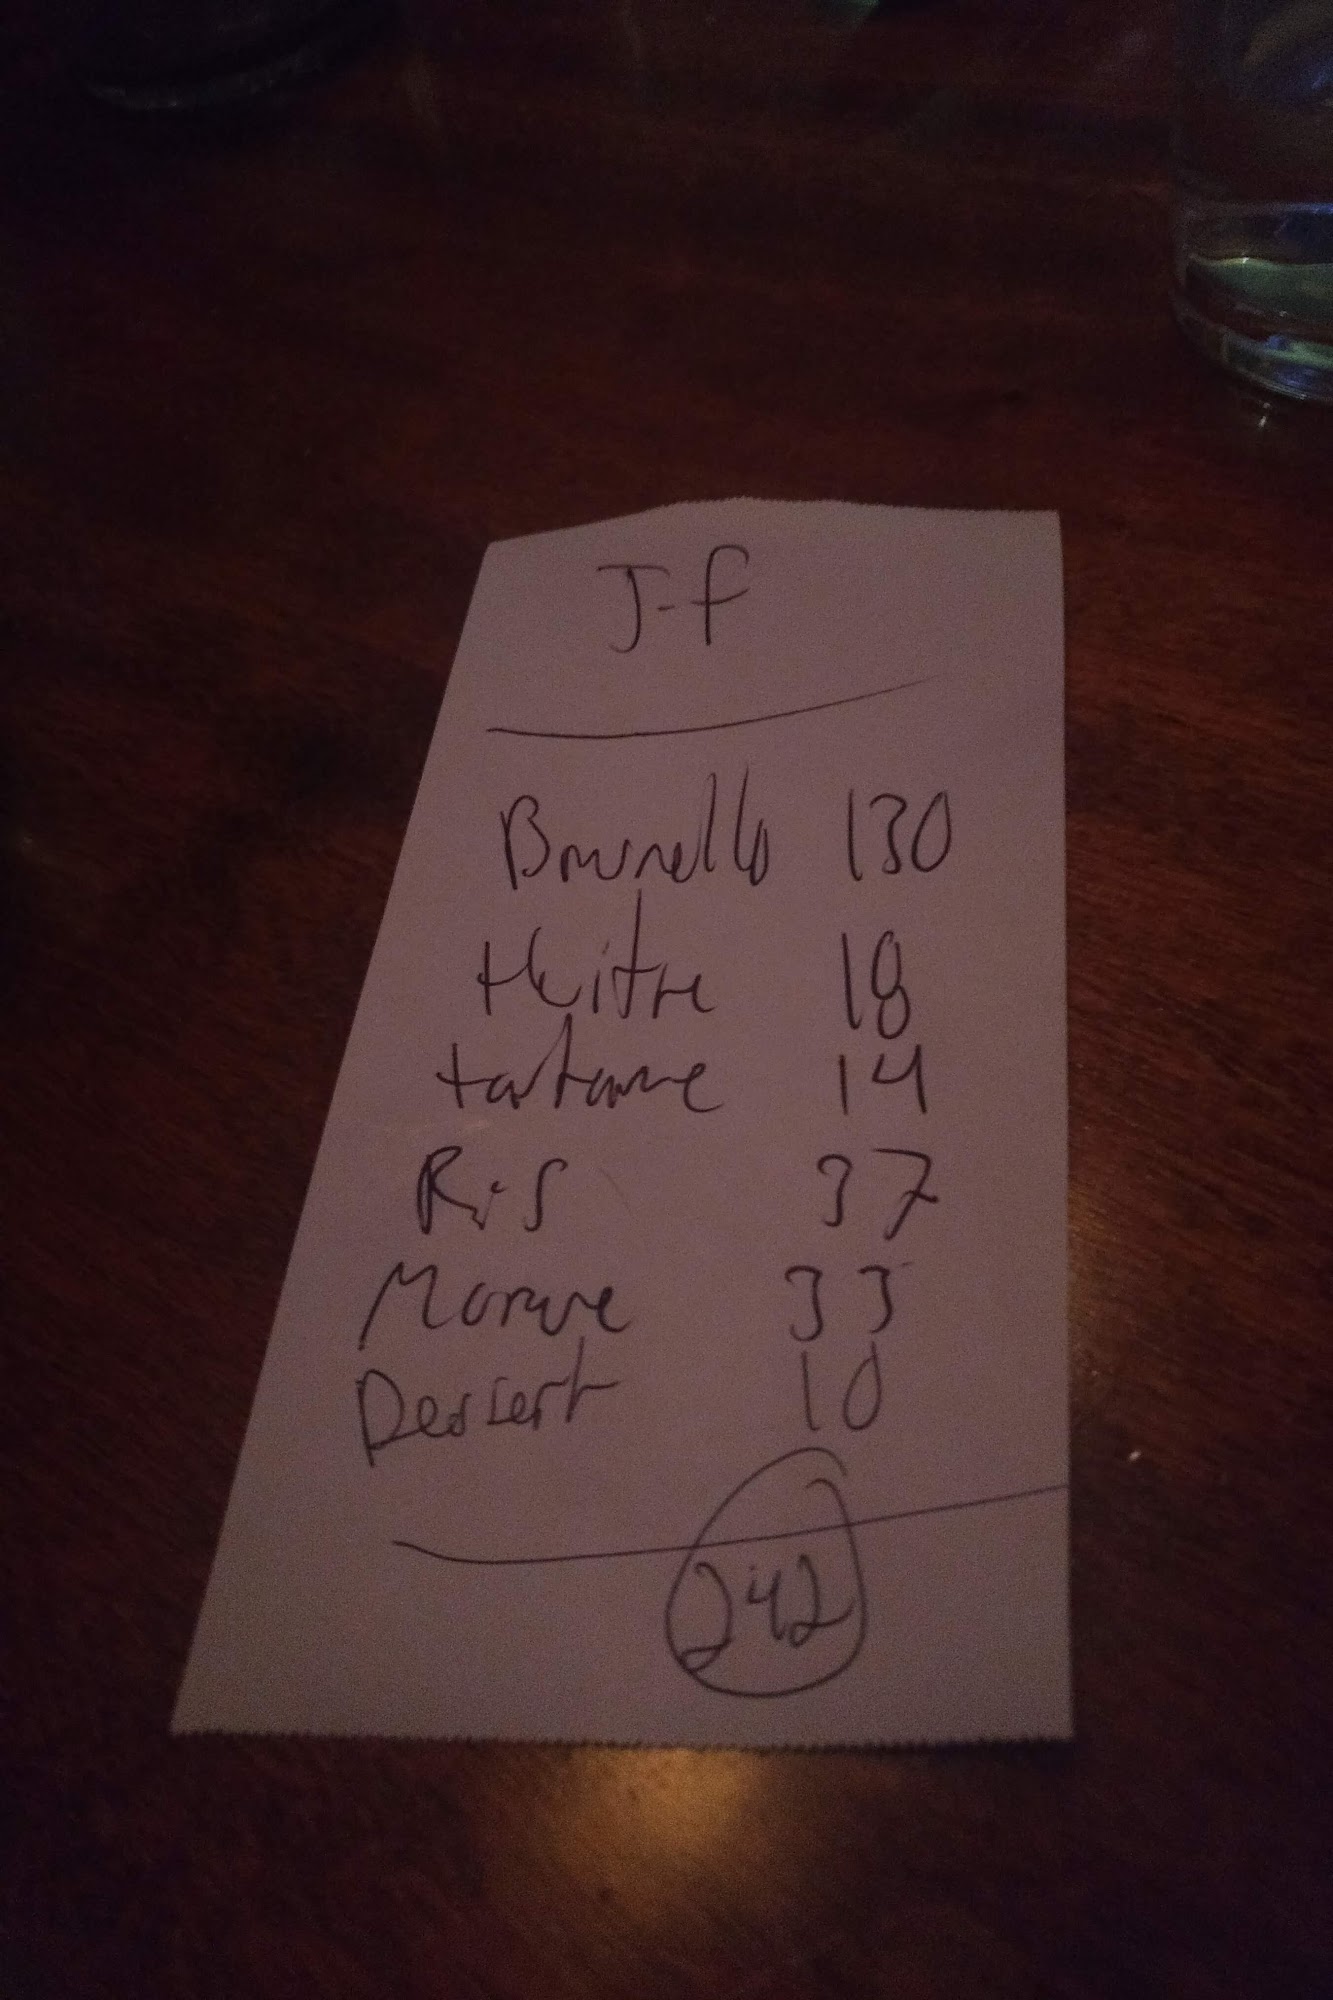 J-F
Brunello 130
Huitre 18
tartare 14
Ris 37
Morue 33
Dessert 10
242